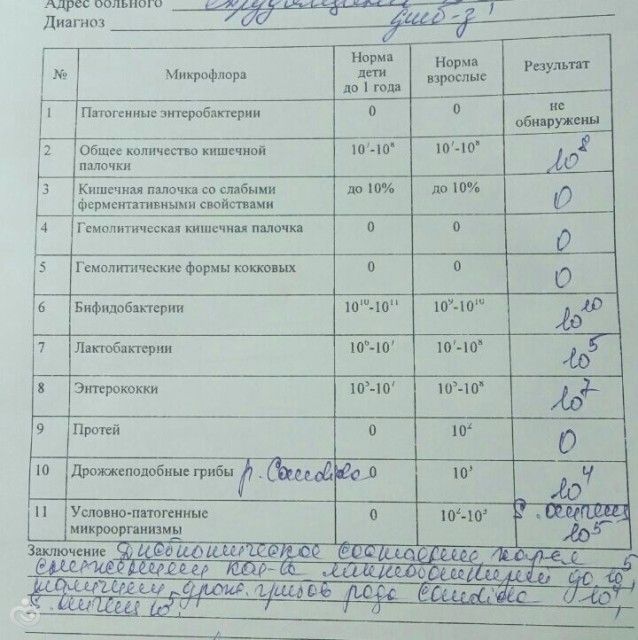 Адрес больного
Диагноз дисб-з
№ Микрофлора Норма дети до 1 года Норма взрослые Результат
1 Патогенные энтеробактерии 0 0 не обнаружены
2 Общее количество кишечной палочки 10⁷-10⁸ 10⁷-10⁸ 10⁸
3 Кишечная палочка со слабыми ферментативными свойствами до 10% до 10% 0
4 Гемолитическая кишечная палочка 0 0 0
5 Гемолитические формы кокковых 0 0 0
6 Бифидобактерии 10¹⁰-10¹¹ 10⁹-10¹⁰ 10¹⁰
7 Лактобактерии 10⁶-10⁷ 10⁷-10⁸ 10⁵
8 Энтерококки 10⁵-10⁷ 10⁵-10⁸ 10⁷
9 Протей 0 10² 0
10 Дрожжеподобные грибы р. Candida 0 10³ 10⁴
11 Условно-патогенные микроорганизмы 0 10²-10³ 10⁵
Заключение Дисбиотическое состояние
снижением кол-ва лактобактерий до 10⁵
наличием дрож. грибов рода Candida 10⁴,
10⁵